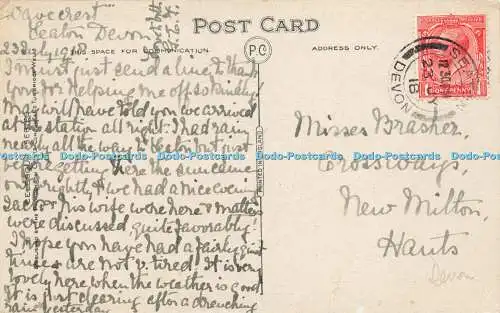 "Wavecrest"
Seaton Devon
23 July 1918
POST CARD
THIS SPACE FOR COMMUNICATION.
ADDRESS ONLY.
P.O
I must just send a line to thank
you for helping me off so kindly
May will have told you we arrived
at the station all right. I had rain
nearly all the way to Seaton but just
before getting here the sun came
out brightly & we had a nice evening
his wife were here & matters
were discussed quite favorably.
I hope you have had a fairly quiet
time & are not v. tired. It is very
lovely here when the weather is good
It is just clearing after a drenching
rain yesterday
Misses Brasher,
Crossways,
New Milton,
Hants
Devon
SEATON
DEVON
23 JY
18
ONE PENNY
PRINTED IN ENGLAND
Dodo-Postcards Dodo-Postcards Dodo-Postcards Dodo-Postcards Dodo-Postcards Dodo-Postcards